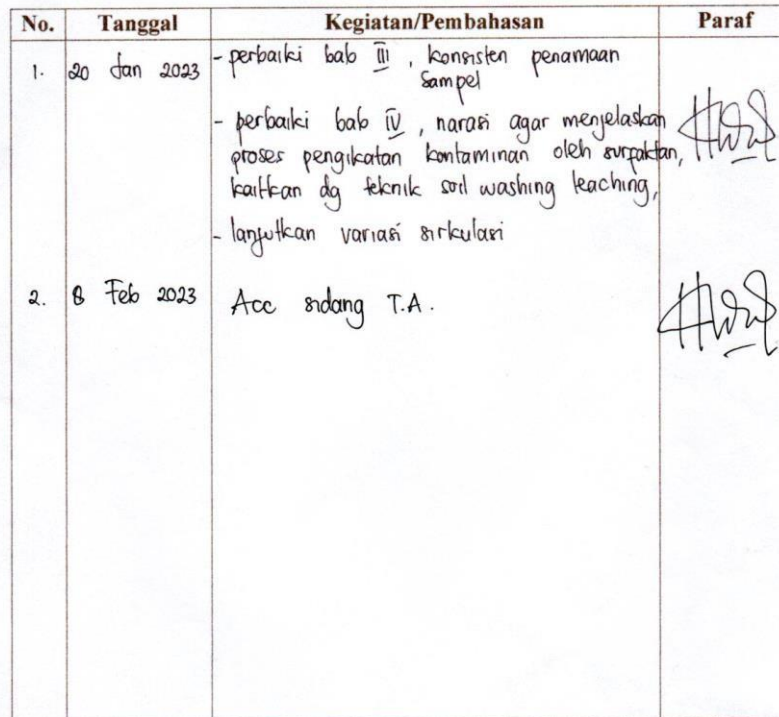 No. Tanggal Kegiatan/Pembahasan Paraf
1. 20 Jan 2023 - perbaiki bab III, konsisten penamaan
sampel
- perbaiki bab IV, narasi agar menjelaskan
proses pengikatan kontaminan oleh surfaktan,
kaitkan dg teknik soil washing leaching,
- lanjutkan variasi sirkulasi
2. 8 Feb 2023 Acc sidang T.A.